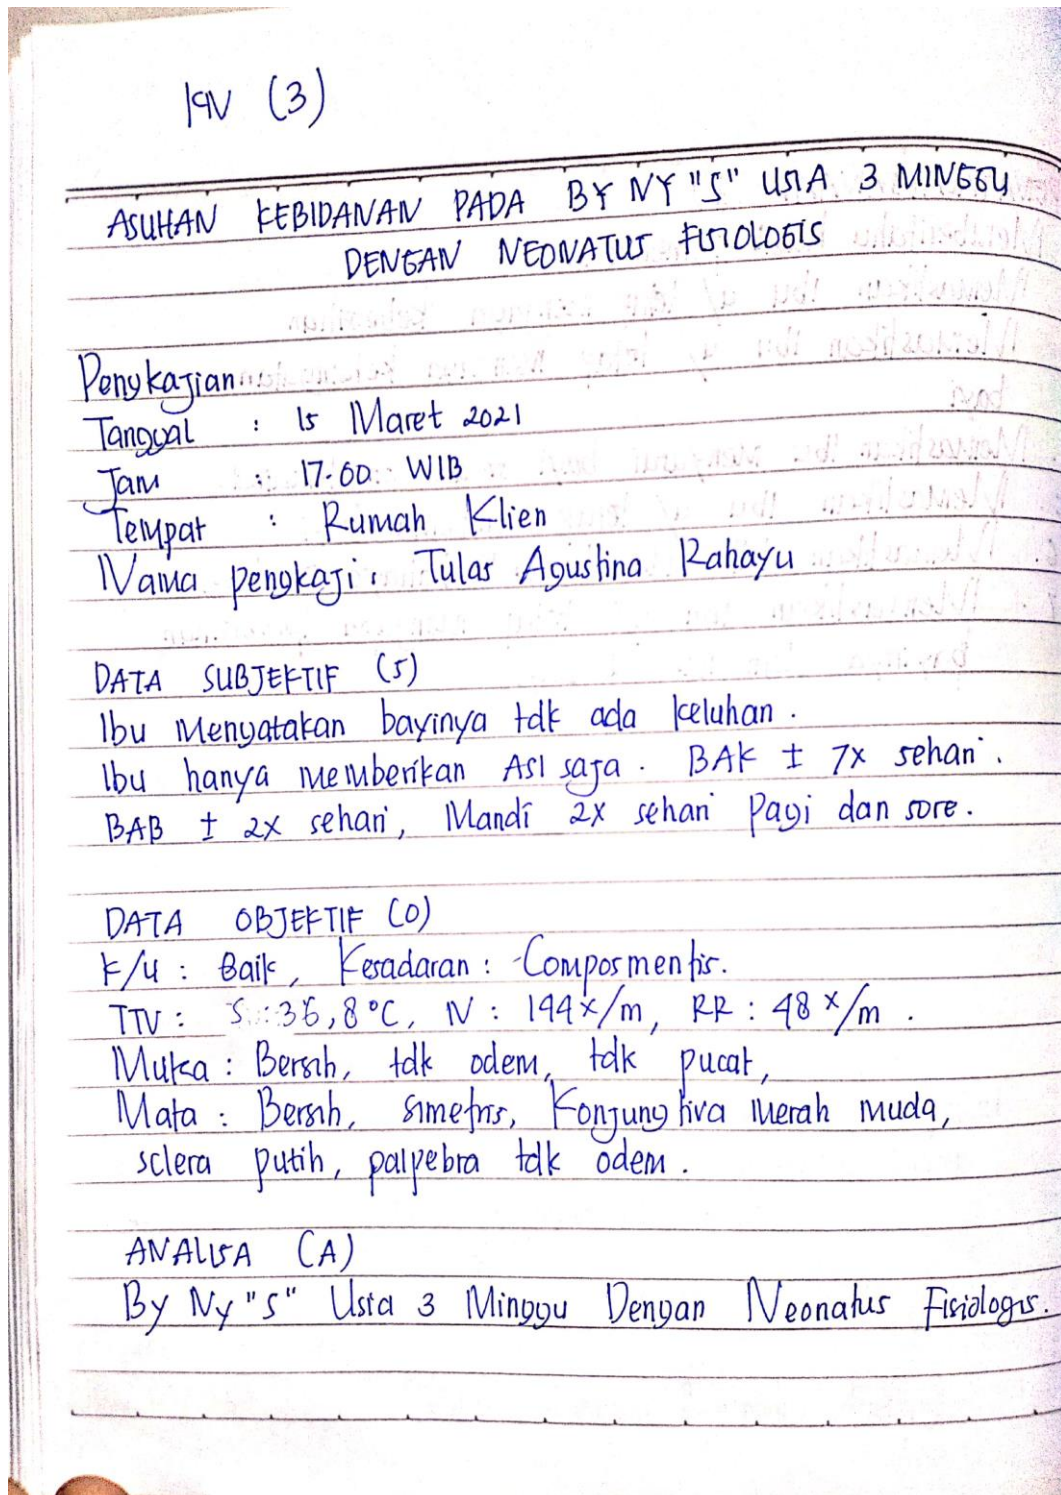 KN (3)
ASUHAN KEBIDANAN PADA BY NY "S" USIA 3 MINGGU
DENGAN NEONATUS FISIOLOGIS
Pengkajian
Tanggal : 15 Maret 2021
Jam : 17.00 WIB
Tempat : Rumah Klien
Nama pengkaji : Tulas Agustina Rahayu
DATA SUBJEKTIF (S)
Ibu Menyatakan bayinya tdk ada keluhan.
Ibu hanya memberikan ASI saja. BAK ± 7x sehari.
BAB ± 2x sehari, Mandi 2x sehari Pagi dan sore.
DATA OBJEKTIF (O)
K/U : Baik, Kesadaran : Composmentis.
TTV : S : 36,8 °C, N : 144 x/m, RR : 48 x/m.
Muka : Bersih, tdk odem, tdk pucat,
Mata : Bersih, simetris, Konjungtiva merah muda,
sclera putih, palpebra tdk odem.
ANALISA (A)
By Ny "S" Usia 3 Minggu Dengan Neonatus Fisiologis.